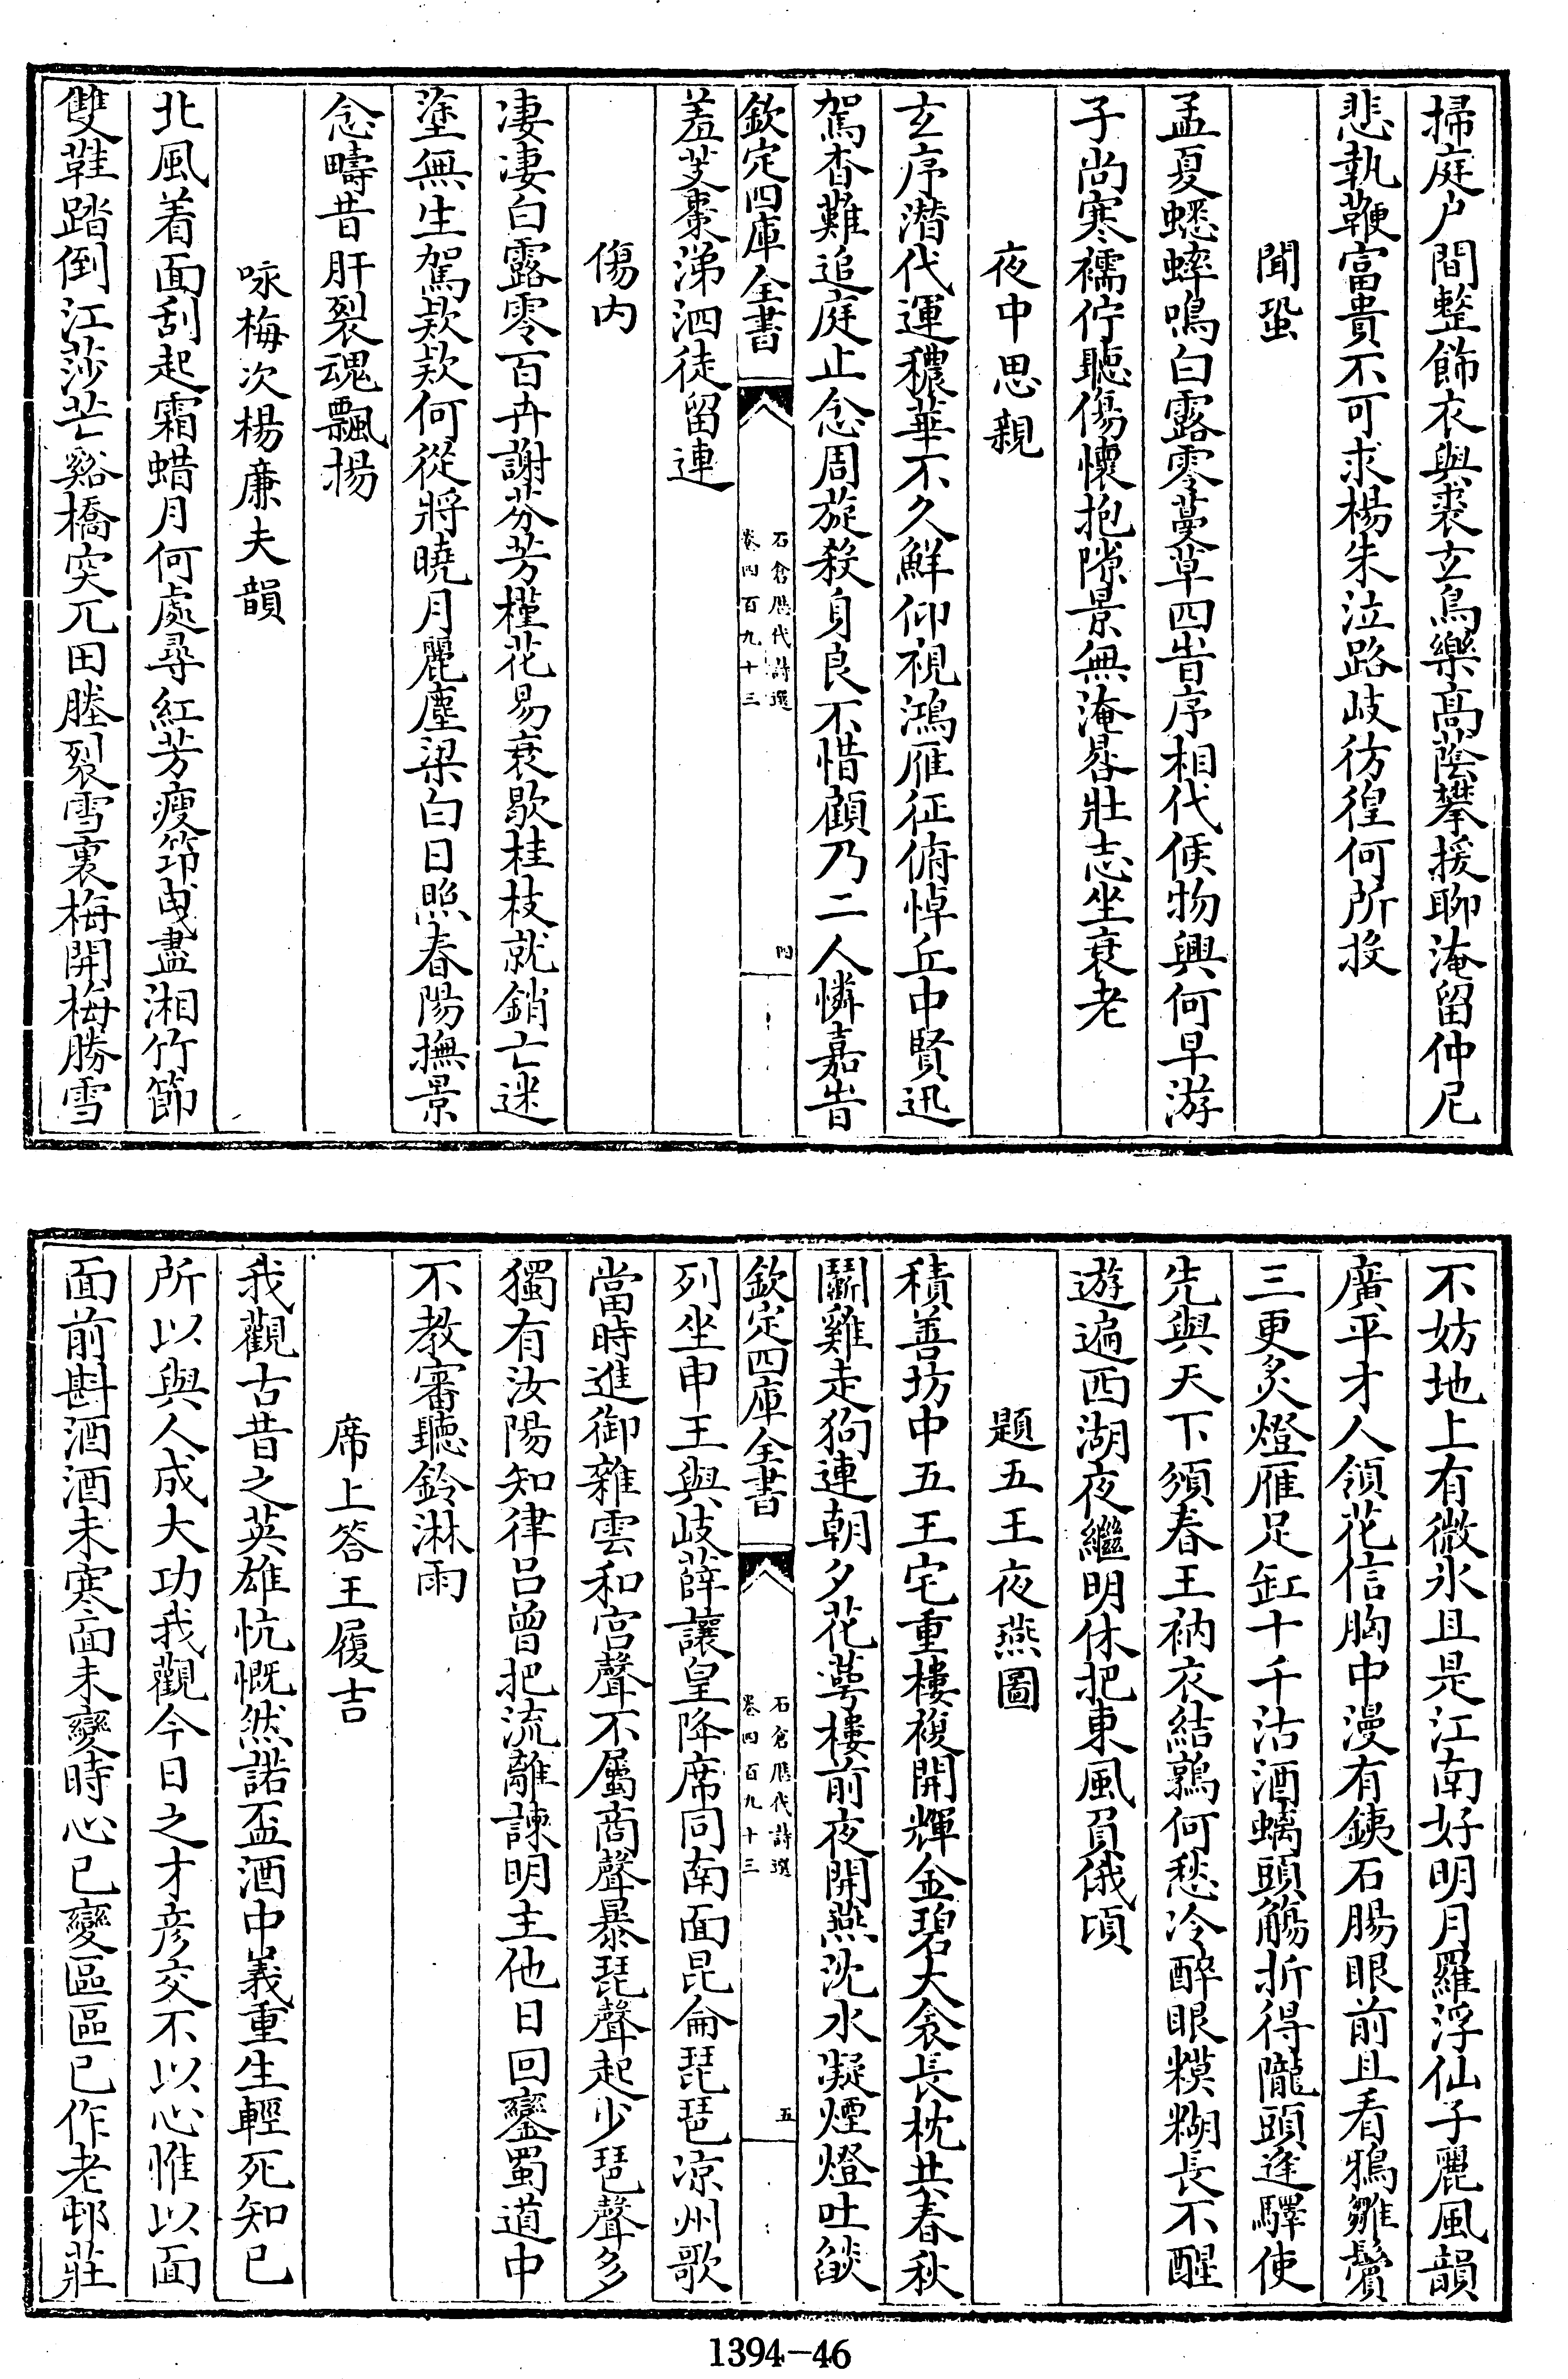 掃庭户間整飾衣與裘立鳥樂高蔭攀援聊淹留仲尼
悲執鞭富貴不可求楊朱泣路岐彷徨何所投
聞蛩
孟夏蟋蟀鳴白露零蔓草四旹序相代候物興何早游
子尚寒襦佇聽傷懷抱隙景無淹晷壯志坐衰老
夜中思親
玄序潛代運穠華不久鮮仰視鴻雁征俯悼丘中賢迅
駕杳難追庭止念周旋殺身良不惜顧乃二人憐嘉旹
欽定四庫全書
石倉歷代詩選
卷四百九十三
四
羞芰棗涕泗徒留連
傷内
凄凄白露零百卉謝芬芳槿花易衰歇桂枝就銷亡迷
塗無生駕欵欵何從將曉月麗塵梁白日照春陽撫景
念疇昔肝裂魂飄揚
咏梅次楊廉夫韻
北風着面刮起霜蜡月何處尋紅芳瘦筇曵盡湘竹節
雙鞋踏倒江莎芒谿橋突兀田塍裂雪裏梅開梅勝雪
不妨地上有微氷且是江南好明月羅浮仙子麗風韻
廣平才人領花信胸中漫有銕石腸眼前且看鴉雛鬢
三更炙燈雁足缸十千沽酒螭頭觴折得隴頭逢驛使
先與天下須春王衲衣結鶉何愁冷醉眼糢糊長不醒
遊遍西湖夜繼明休把東風負俄頃
題五王夜燕圖
積善坊中五王宅重樓複開輝金碧大衾長枕共春秋
鬭雞走狗連朝夕花萼樓前夜開燕沈水凝煙燈吐燄
欽定四庫全書
石倉歷代詩選
卷四百九十三
五
列坐申王與岐薛讓皇降席同南面昆侖琵琶凉州歌
當時進御雜雲和宫聲不屬商聲暴琵聲起少琶聲多
獨有汝陽知律吕曾把流離諫明主他日回鑾蜀道中
不教審聽鈴淋雨
席上答王履吉
我觀古昔之英雄忼慨然諾盃酒中義重生輕死知已
所以與人成大功我觀今日之才彦交不以心惟以面
面前斟酒酒未寒面未變時心已變區區已作老邨莊
1394-46